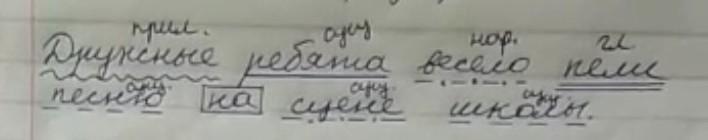 прил. сущ нар. гл
Дружные ребята весело пели
сущ. сущ. сущ.
песню на сцене школы.